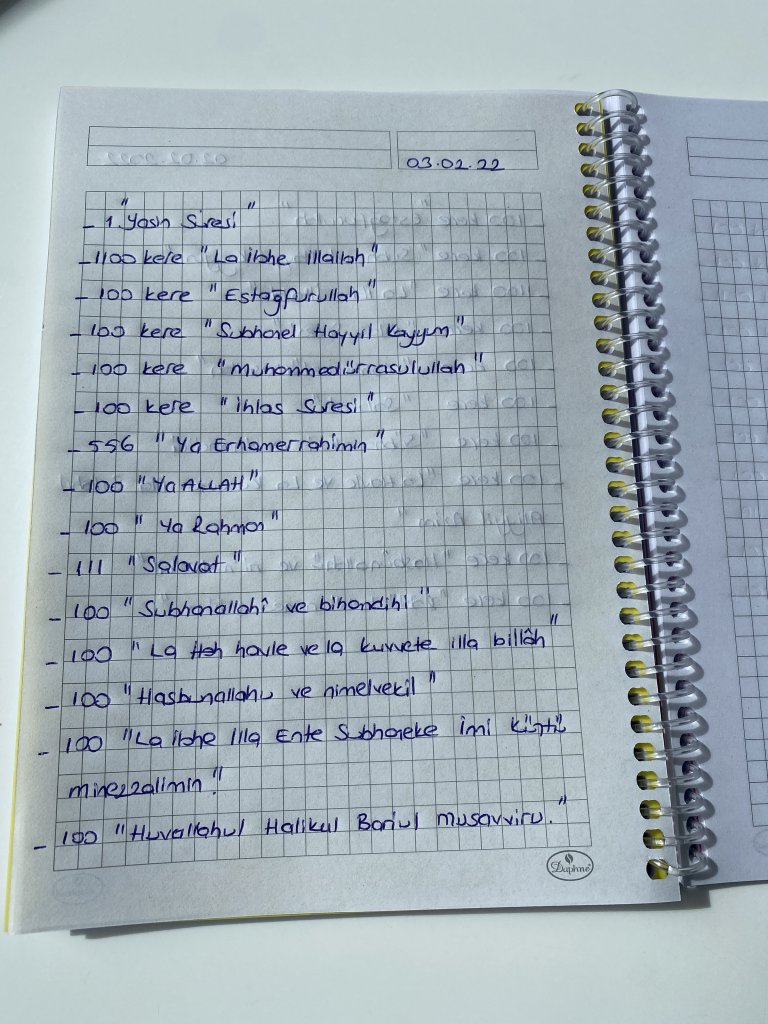 03.02.22
- 1 "Yasin Suresi"
- 1100 kere "La ilahe illallah"
- 100 kere "Estağfurullah"
- 100 kere "Subhanel Hayyil Kayyum"
- 100 kere "Muhammedürrasulullah"
- 100 kere "ihlas Suresi"
- 556 "Ya Erhamerrahimin"
- 100 "Ya ALLAH"
- 100 "Ya Rahman"
- 111 "Salavat"
- 100 "Subhanallahi ve bihamdihi"
- 100 "La havle vela kuvvete illa billâh"
- 100 "Hasbunallahu ve nimelvekil"
- 100 "La ilahe illa Ente Subhaneke inni küntü
minezzalimin."
- 100 "Huvallahul Halikul Bariul musavviru."
Daphne